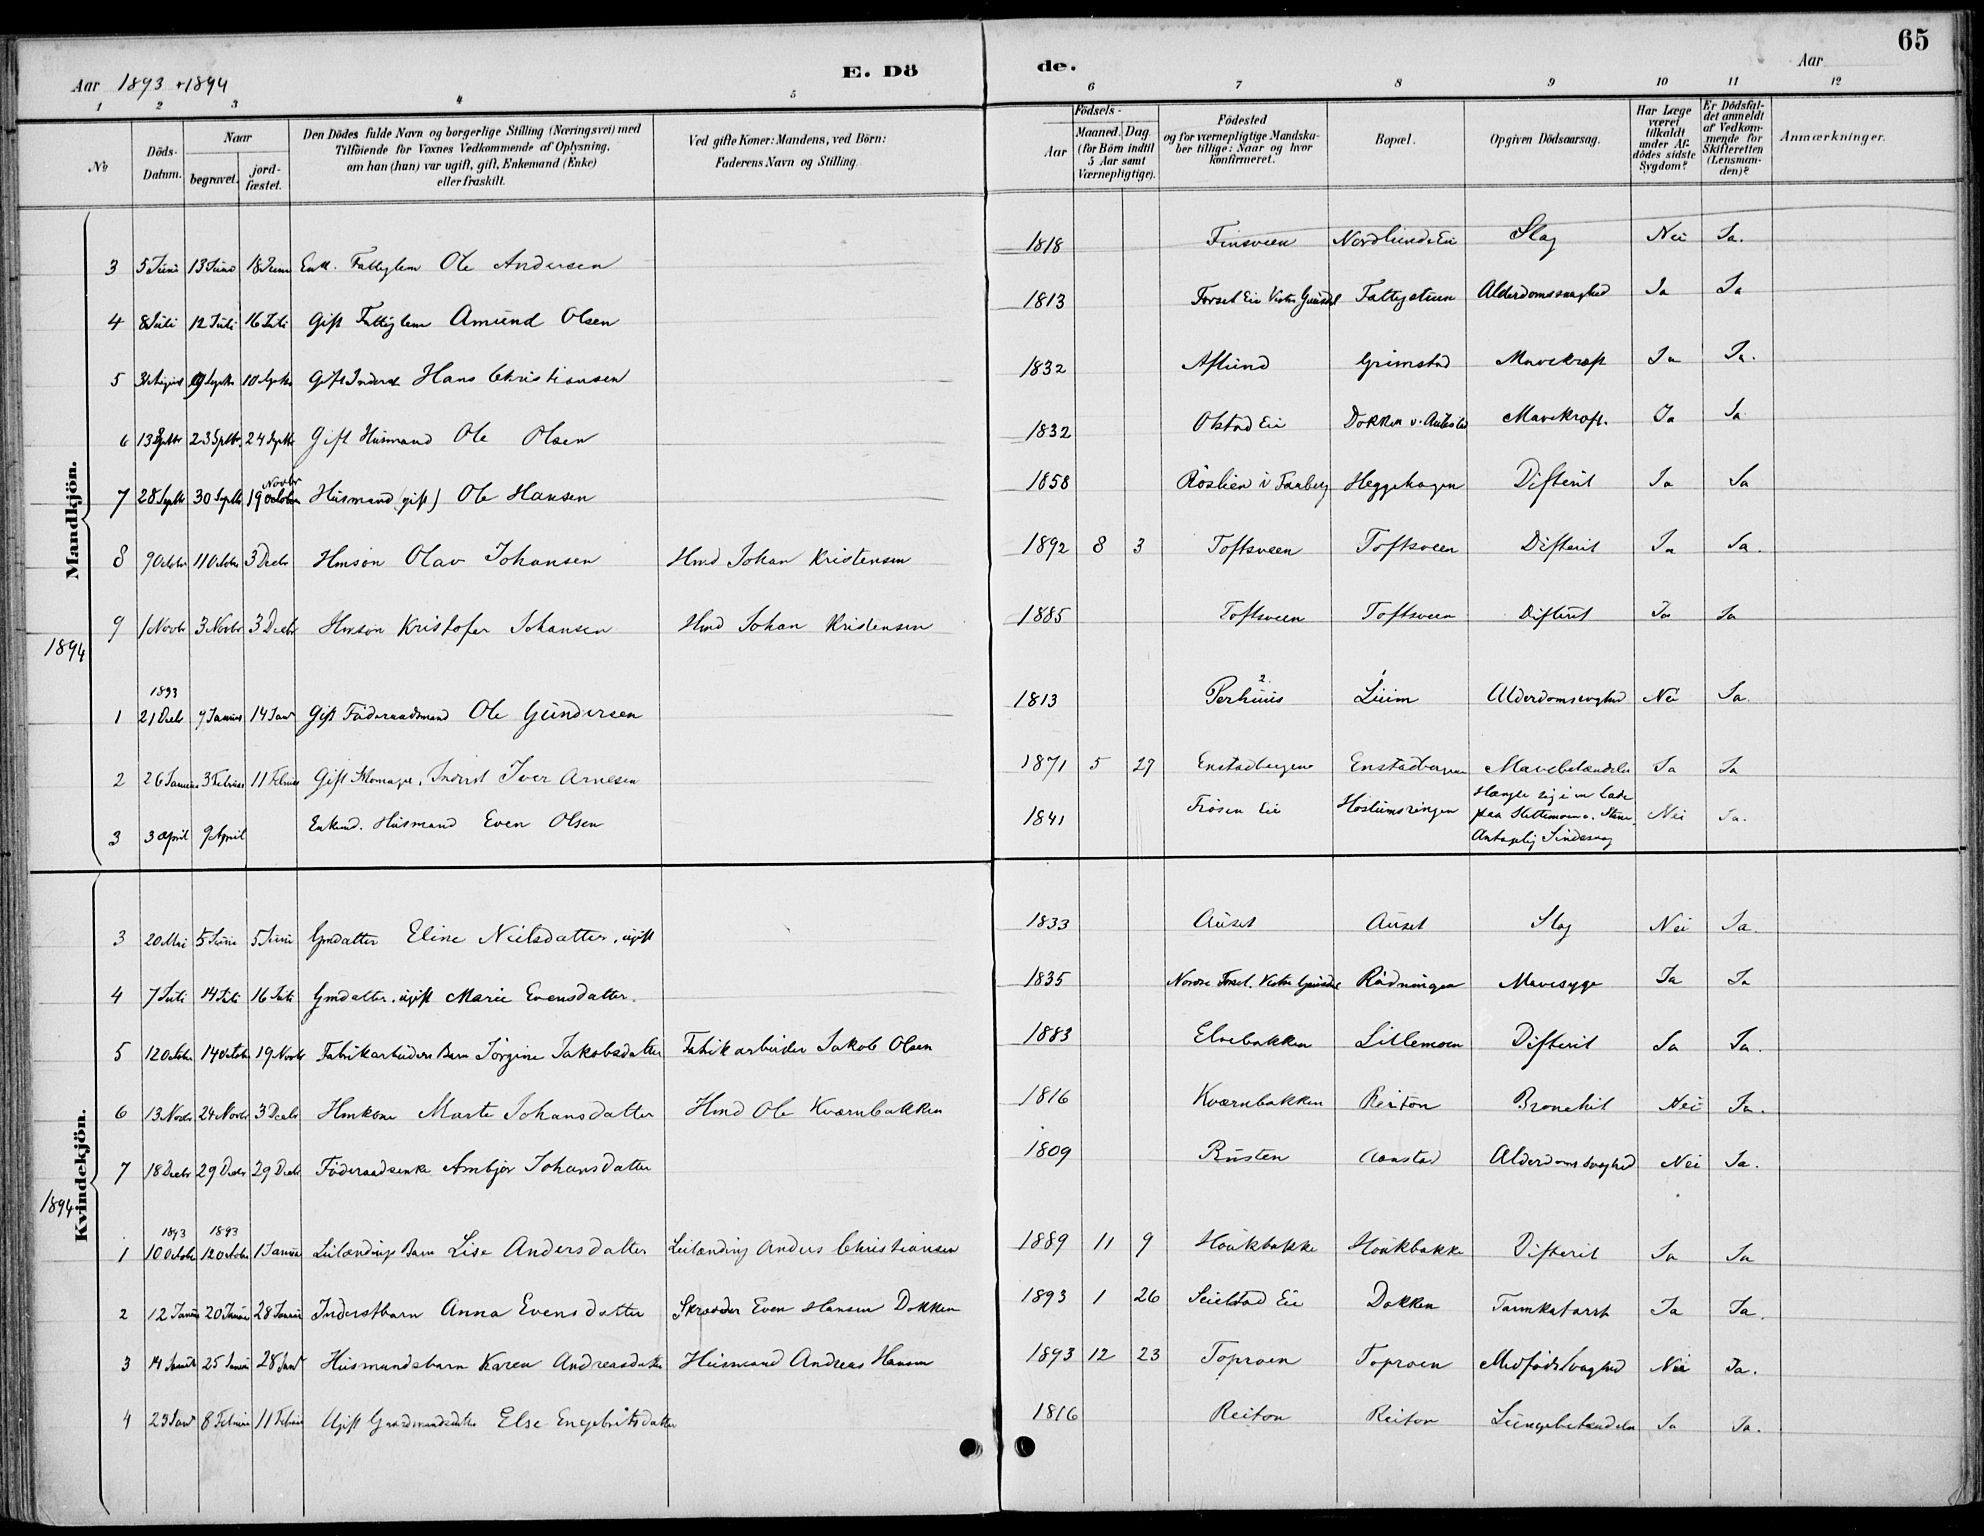 65
Aar 1893 + 1894 E. Dö de. Aar
1 2 3 4 5 6 7 8 9 10 11 12
No
Döds-Datum.
Naar
begravet.
jord-fæstet.
Den Dödes fulde Navn og borgerlige Stilling (Næringsvei) med
Tilföiende for Voxnes Vedkommende af Oplysning,
om han (hun) var ugift, gift, Enkemand (Enke)
eller fraskilt.
Ved gifte Koner: Mandens, ved Börn:
Faderens Navn og Stilling.
Födsels-
Aar
Maaned. Dag.
(for Börn indtil
5 Aar samt
Værnepligtige).
Födested
og for værnepligtige Mandska-
ber tillige: Naar og hvor
konfirmeret.
Bopæl.
Opgiven Dödsaarsag.
Har Læge
været
tilkaldt
under Af-
dödes sidste
Sygdom?
Er Dödsfal-
det anmeldt
af Vedkom-
mende for
Skifteretten
(Lensman-
den)?
Anmærkninger.
Mandkjön.
3 5 Juni 13 Juni 18 Juni Enk. Fattiglem Ole Andersen 1818 Finsveen Nordlunds Eie Slag Nei Ja.
4 8 Juli 12 Juli 16 Juli Gift Fattiglem Amund Olsen 1813 Forset Eie Vestre Gausdal Fattigstuen Alderdomssvaghed Ja Ja
5 31 August 9 Septbr 10 Septbr Gift Inderst Hans Christiansen 1832 Aflund Grimstad Mavekræft Ja Ja.
6 13 Septbr 23 Septbr. 24 Septbr Gift Husmand Ole Olsen 1832 Olstad Eie Dokken v. Aulestad Mavekræft. Ja Ja
7 28 Septbr 30 Septbr 19 Novbr Husmand (gift) Ole Hansen 1858 Röslien i Faaberg Heggehagen Difterit Ja Ja
8 9 Octobr 11 Octobr 3 Decbr Hmsön Olav Johansen Hmd Johan Kristensen 1892 8 3 Toftsveen Toftsveen Difterit Ja Ja.
9 1 Novbr 3 Novbr 3 Decbr Hmsön Kristofer Johansen Hmd Johan Kristensen 1885 Toftsveen Toftsveen Difterit Ja Ja
1894
1893
1 21 Decbr 9 Januar 14 Janr Gift Föderaadsmand Ole Gundersen 1813 Perhuus Liium Alderdomssvaghed Nei Ja.
2 26 Januar 3 Februar 11 Februar Gift Skomager, Inderst Iver Arnesen 1871 5 27 Enstadbergene Enstadbergene Mavebetændelse Ja Ja
3 3 April 9 April Enkemd. Husmand Even Olsen 1841 Frösen Eie Hoslumsringen Hængte sig i en Lade
paa Slettemoen. Antagelig Sindssvag Nei Ja.
Kvindekjön.
3 20 Mai 5 Juni 5 Juni Gmdatter Eline Neilsdatter, ugift 1833 Auset Auset Slag Nei Ja
4 7 Juli 14 Juli 16 Juli Gmdatter, ugift Marie Evensdatter. 1835 Nordre Forset. Vestre Gausdal Rödningen Mavesyge Ja Ja
5 12 Octobr 14 Octobr 19 Novbr Fabrikarbeiders Barn Jörgine Jakobsdatter Fabrikarbeider Jakob Olsen 1883 Elvebakken Lillemoen Difterit Ja Ja.
6 13 Novbr 24 Novbr 3 Decbr Hmkone Marte Johansdatter Hmd Ole Kværnbakken 1816 Kværnbakken Reiton Bronchit Nei Ja.
7 18 Decbr 29 Decbr 29 Decbr Föderaadsenke Ambjör Johansdatter 1809 Rusten Aanstad Alderdomssvaghed Nei Ja.
1894
1893 1893
1 10 Octobr 12 Octobr 1 Januar Leilændings Barn Lise Andersdatter Leilænding Anders Christiansen 1889 11 9 Haukbakke Haukbakke Difterit Ja Ja
2 12 Januar 20 Januar 28 Januar Inderstbarn Anna Evensdatter Skrædder Even Hansen Dokken 1893 1 26 Seielstad Eie Dokken Tarmkatarrh Ja Ja.
3 14 Januar 25 Januar 28 Janr Husmandsbarn Karen Andreasdatter Husmand Andreas Hansen 1893 12 23 Toproen Toproen Medfödt Svaghed Nei Ja.
4 23 Janr 8 Februar 11 Februar Ugift Gaardmandsdatter Else Engebritsdatter 1816 Reiton Reiton Lungebetændelse Ja Ja.